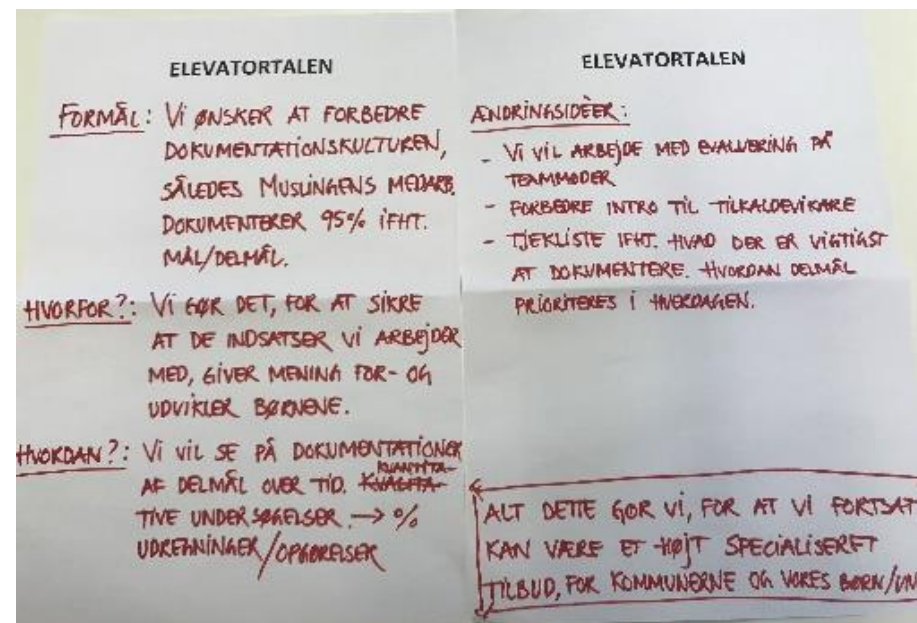 ELEVATORTALEN
FORMÅL: Vi ØNSKER AT FORBEDRE
DOKUMENTATIONSKULTUREN,
SÅLEDES MUSLINGENS MEDARB.
DOKUMENTERER 95% IFHT.
MÅL/DELMÅL.
HVORFOR?: Vi GØR DET, FOR AT SIKRE
AT DE INDSATSER VI ARBEJDER
MED, GIVER MENING FOR- OG
UDVIKLER BØRNENE.
HVORDAN?: Vi VIL SE PÅ DOKUMENTATIONER
AF DELMÅL OVER TID. KVALITA- KVANTITA-
TIVE UNDERSØGELSER. → %
UDREGNINGER/OPGØRELSER
ELEVATORTALEN
ÆNDRINGSIDÈER:
- Vi VIL ARBEJDE MED EVALUERING PÅ
TEAMMØDER
- FORBEDRE INTRO TIL TILKALDEVIKARE
- TJEKLISTE IFHT. HVAD DER ER VIGTIGST
AT DOKUMENTERE. HVORDAN DELMÅL
PRIORITERES I HVERDAGEN.
ALT DETTE GØR VI, FOR AT VI FORTSAT
KAN VÆRE ET HØJT SPECIALISERET
TILBUD, FOR KOMMUNERNE OG VORES BØRN/UN